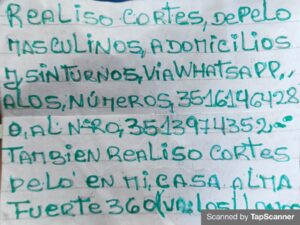 REALISO CORTES, DE PELO
MASCULINOS, A DOMICILIOS
Y SIN TURNOS, VIA WHATSAPP,,
ALOS, NÚMEROS, 3516146428
O, AL NRO, 3513974352
TAMBIEN REALISO CORTES
PELO EN MI, CASA ALMA
FUERTE 360
Scanned by TapScanner